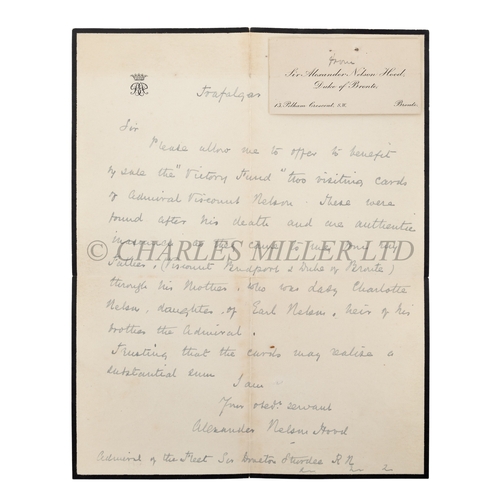 from
Sir Alexander Nelson Hood,
Duke of Bronte.
13 Pelham Crescent, S.W. Bronte.
Trafalgar
Sir
Please allow me to offer to benefit
by sale the "Victory Fund" two visiting cards
of Admiral Viscount Nelson. These were
found after his death and are authentic
as they came to me from my
Father, (Viscount Bridport & Duke of Bronte)
through his Mother, who was Lady Charlotte
Nelson, daughter of Earl Nelson, heir of his
brother the Admiral.
Trusting that the cards may realise a
substantial sum
I am
Your obedt. servant
Alexander Nelson Hood
Admiral of the Fleet Sir Doveton Sturdee R.N.
© CHARLES MILLER LTD